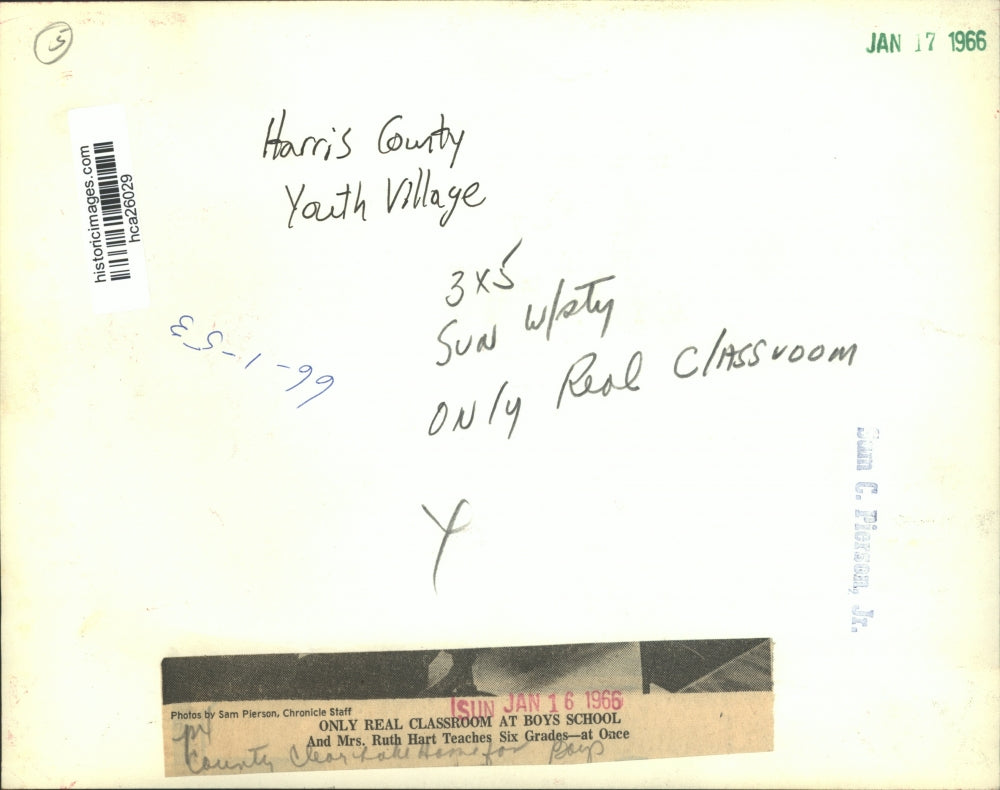 5
JAN 17 1966
historicimages.com
hca26029
Harris County
Youth Village
3x5
SUN w/sty
ONly Real ClASSroom
66-1-53
Sam C. Pierson, Jr.
Y
SUN JAN 16 1966
Photos by Sam Pierson, Chronicle Staff
ONLY REAL CLASSROOM AT BOYS SCHOOL
And Mrs. Ruth Hart Teaches Six Grades—at Once
County Clear Lake Home for Boys